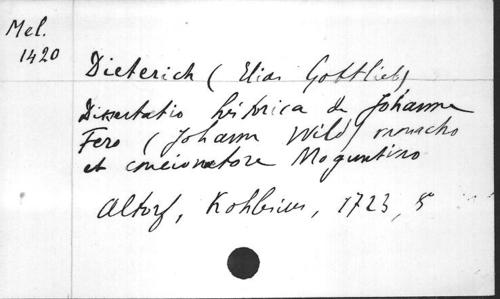 Mel.
1420
Dieterich (Elias Gottlieb)
Dissertatio historica de Johanne
Fero (Johann Wild) monacho
et concionatore Moguntino
Altorf, Kohlesius, 1723, 5